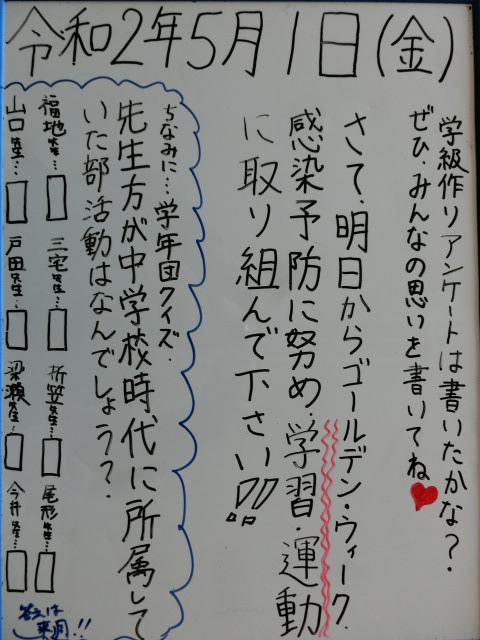 令和2年5月1日(金)
学級作りアンケートは書いたかな？
ぜひ、みんなの思いを書いてね♥
さて、明日からゴールデン・ウィーク、
感染予防に努め、学習・運動
に取り組んで下さい!!
ちなみに…学年団クイズ、
先生方が中学校時代に所属して
いた部活動はなんでしょう？、
福地先生…□ 三宅先生…□ 折笠先生…□ 尾形先生…□
山口先生…□ 戸田先生…□ 梁瀬先生…□ 今井先生…□
答えは
来週!!